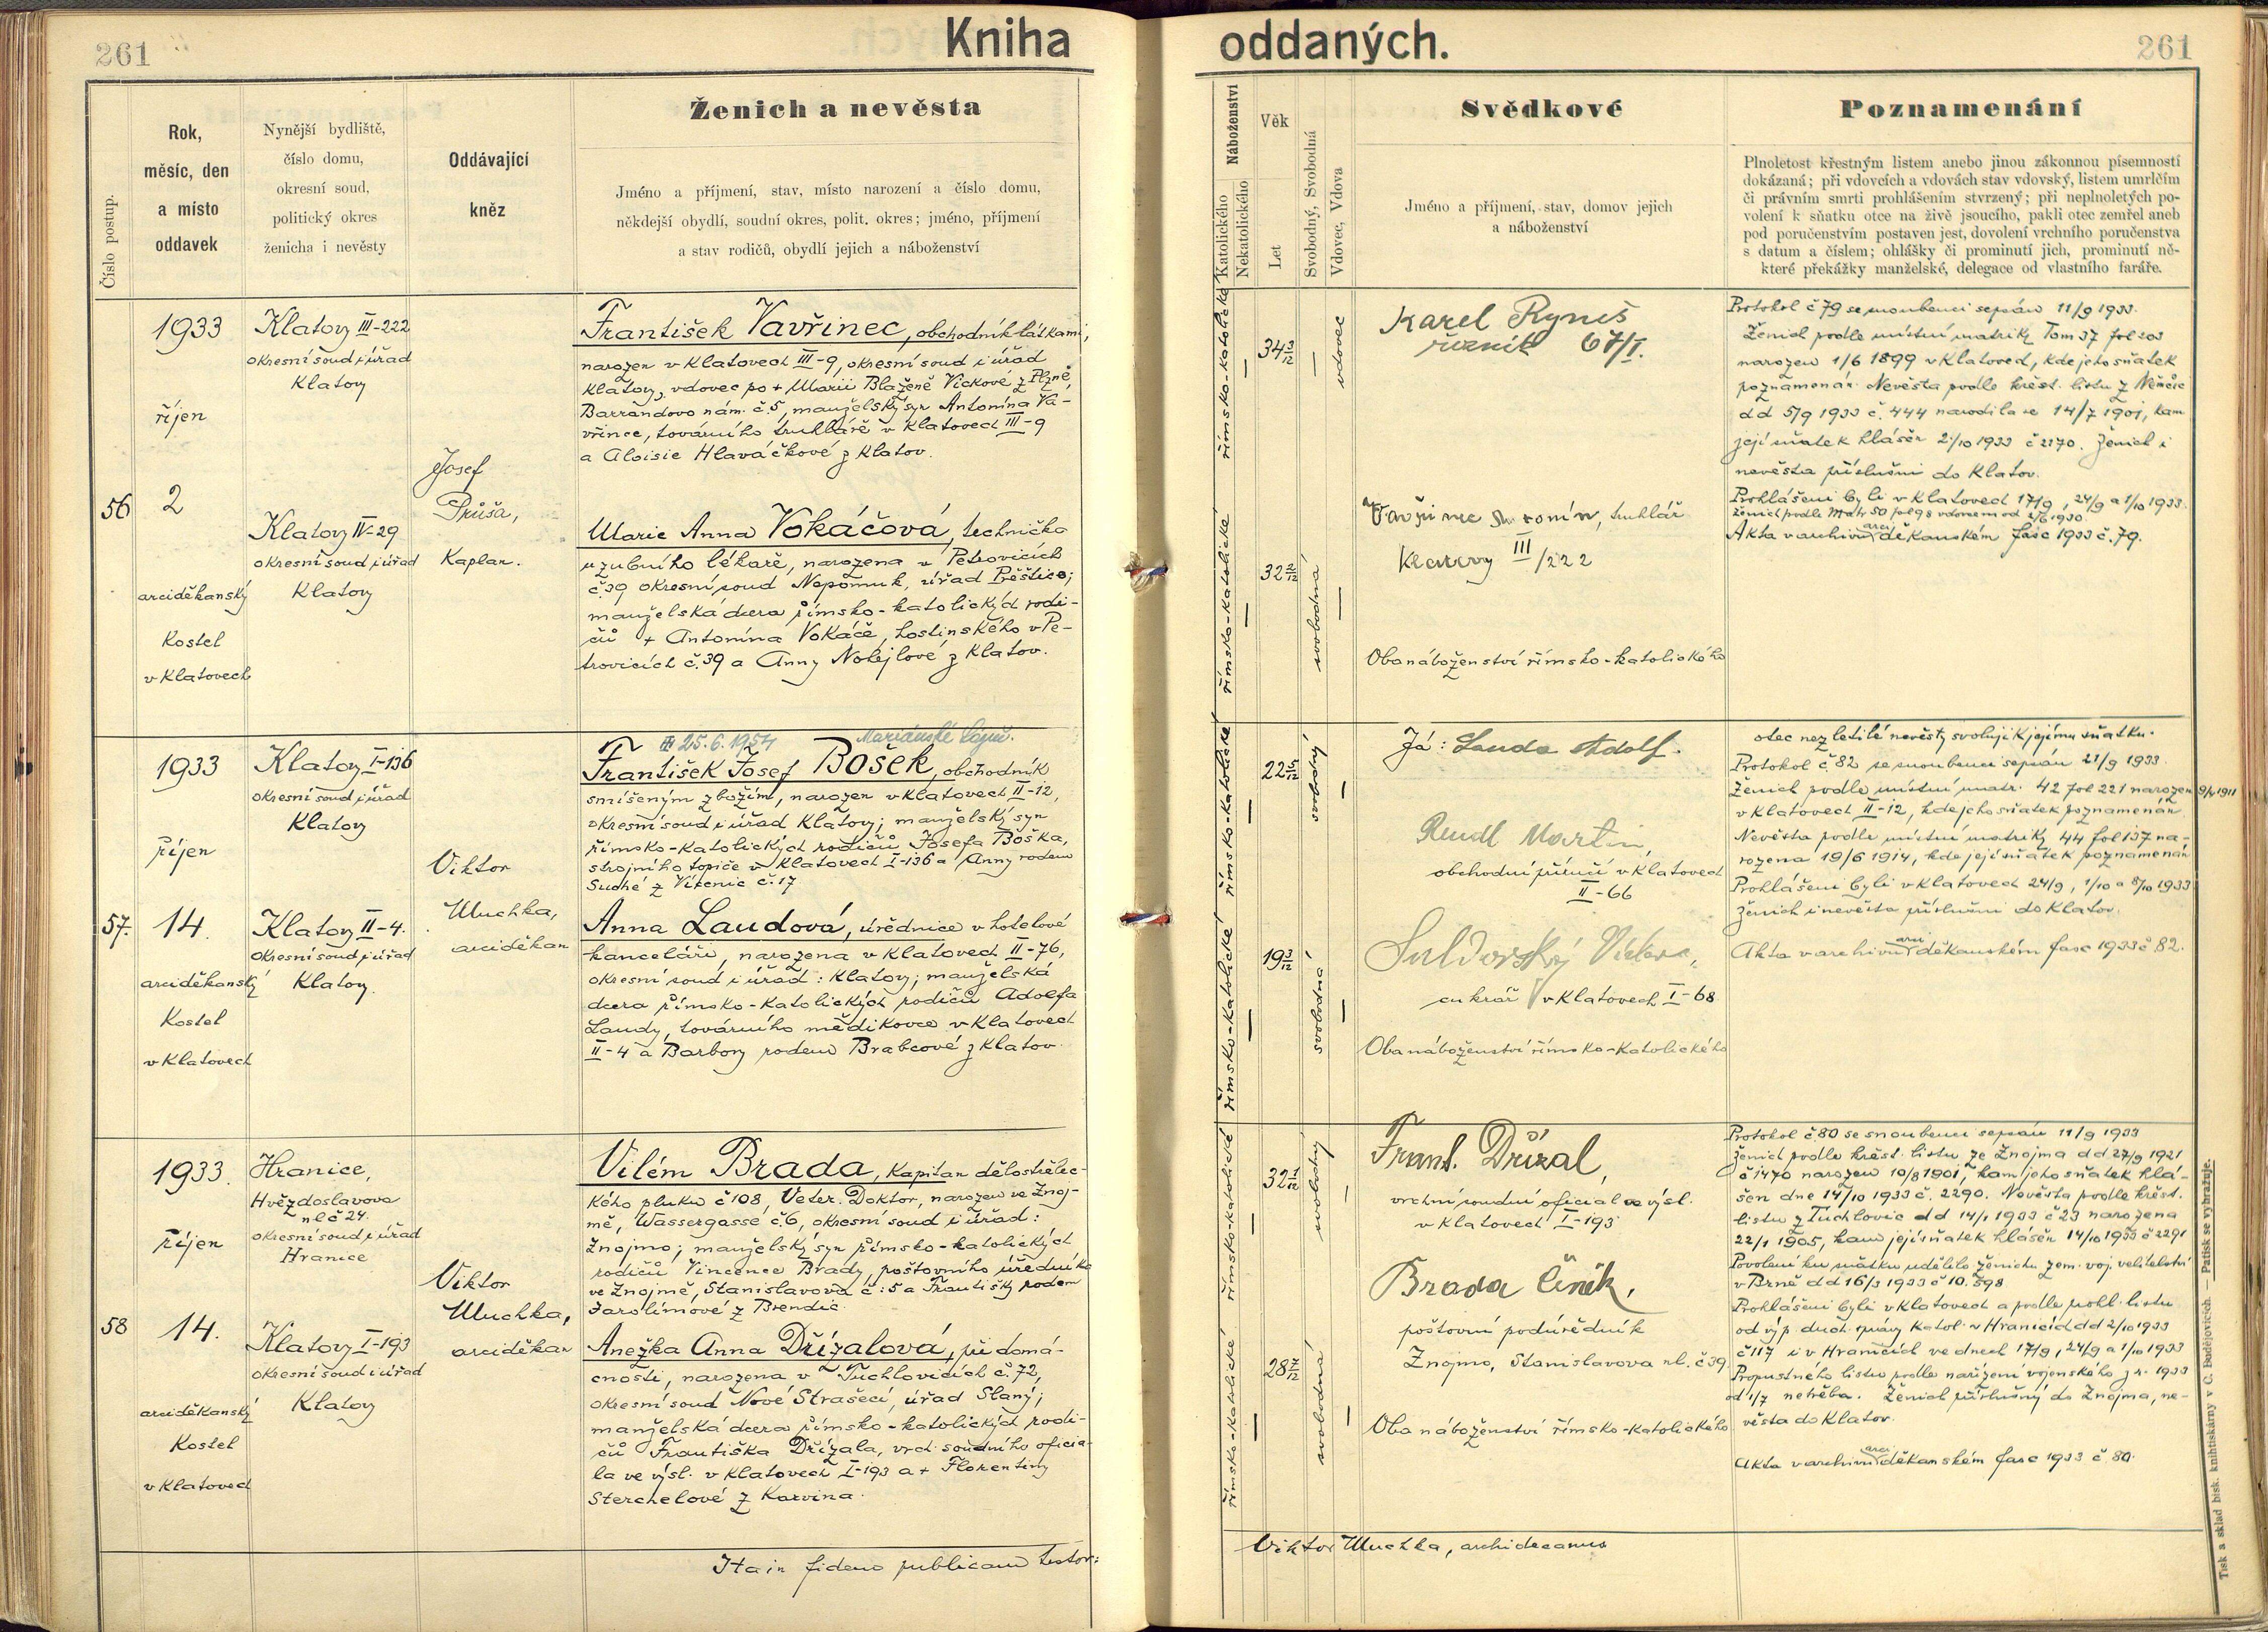 261
Kniha
oddaných.
261
Číslo postup.
Rok,
měsíc, den
a místo
oddavek
Nynější bydliště,
číslo domu,
okresní soud,
politický okres
ženicha i nevěsty
Oddávající
kněz
Ženich a nevěsta
Jméno a příjmení, stav, místo narození a číslo domu,
někdejší obydlí, soudní okres, polit. okres; jméno, příjmení
a stav rodičů, obydlí jejich a náboženství
Náboženství
Katolického
Nekatolického
Věk
Let
Svobodný, Svobodná
Vdovec, Vdova
Svědkové
Jméno a příjmení, stav, domov jejich
a náboženství
Poznamenání
Plnoletost křestným listem anebo jinou zákonnou písemností
dokázaná; při vdovcích a vdovách stav vdovský, listem umrlčím
či právním smrti prohlášením stvrzený; při neplnoletých po-
volení k sňatku otce na živě jsoucího, pakli otec zemřel aneb
pod poručenstvím postaven jest, dovolení vrchního poručenstva
s datum a číslem; ohlášky či prominutí jich, prominutí ně-
které překážky manželské, delegace od vlastního faráře.
56
1933
říjen
2
arciděkanský
Kostel
v Klatovech
Klatovy III-222
okresní soud i úřad
Klatovy
Klatovy IV-29
okresní soud i úřad
Klatovy
Josef
Průša,
Kaplan.
František Vavřinec, obchodník látkami,
narozen v Klatovech III-9, okresní soud i úřad
Klatovy, vdovec po + Marii Blaženě Vickové z Plzně,
Barrandovo nám. č. 5, manželský syn Antonína Va-
vřince, továrního truhláře v Klatovech III-9
a Aloisie Hlaváčkové z Klatov.
Marie Anna Vokáčová, technička
u zubního lékaře, narozena v Petrovicích
č. 39 okresní soud Nepomuk, úřad Přeštice;
manželská dcera římsko-katolických rodi-
čů + Antonína Vokáče, hostinského v Pe-
trovicích č. 39 a Anny Nolejlové z Klatov.
římsko-katolické
34 3/12
vdovec
římsko-katolické
32 2/12
svobodná
Karel Ryneš
řezník 67/I.
Vavřinec Antonín, truhlář
Klatovy III/222
Oba náboženství římsko-katolického
Protokol č 79 se snoubenci sepsán 11/9 1933.
Ženich podle místní matriky Tom 37 fol 203
narozen 1/6 1899 v Klatovech, kde jeho sňatek
poznamenán. Nevěsta podle křest. listu z
dd 5/9 1933 č. 444 narodila se 14/7 1901, kam
její sňatek hlášen 2/10 1933 č 2170. Ženich i
nevěsta příslušni do Klatov.
Prohlášeni byli v Klatovech 17/9, 24/9 a 1/10 1933.
Ženich podle Matr 50 fol 98 vdovcem od 2/6 1930.
Akta v archivu arciděkanském fasc 1933 č. 79.
57.
1933
říjen
14.
arciděkanský
Kostel
v Klatovech
Klatovy I-136
okresní soud i úřad
Klatovy
Klatovy II-4.
okresní soud i úřad
Klatovy.
Viktor
Muchka,
arciděkan
25.6.1954 Mariánské Lázně.
František Josef Bošek, obchodník
smíšeným zbožím, narozen v Klatovech II-12,
okresní soud i úřad Klatovy; manželský syn
římsko-katolických rodičů Josefa Boška,
strojního topiče v Klatovech I-136 a Anny rodem
Suché z Vítenic č. 17
Anna Laudová, úřednice v hotelové
kanceláři, narozena v Klatovech II-76,
okresní soud i úřad: Klatovy; manželská
dcera římsko-katolických rodičů Adolfa
Laudy, továrního mědikovce v Klatovech
II-4 a Barbory rodem Brabcové z Klatov.
římsko-katolické
22 5/12
svobodný
římsko-katolické
19 3/12
svobodná
Já: Lauda Adolf.
Rendl Martin,
obchodní příručí v Klatovech
II-66
cukrář v Klatovech I-68
Oba náboženství římsko-katolického
otec nezletilé nevěsty svoluji k jejímu sňatku.
Protokol č. 82 se snoubenci sepsán 21/9 1933.
Ženich podle místní matr. 42 fol 221 narozen 9/4 1911
v Klatovech II-12, kde jeho sňatek poznamenán
Nevěsta podle místní matriky 44 fol 137 na-
rozena 19/6 1914, kde její sňatek poznamenán
Prohlášeni byli v Klatovech 24/9, 1/10 a 8/10 1933
Ženich i nevěsta příslušni do Klatov.
Akta v archivu arciděkanském fasc 1933 č 82.
58
1933.
říjen
14.
arciděkanský
Kostel
v Klatovech
Hranice,
Hvězdoslavova
ul č 24.
okresní soud i úřad
Hranice
Klatovy I-193
okresní soud i úřad
Klatovy
Viktor
Muchka,
arciděkan
Vilém Brada, Kapitan dělostřelec-
kého pluku č 108, Veter. Doktor, narozen ve Znoj-
mě, Wassergasse č. 6, okresní soud i úřad:
Znojmo; manželský syn římsko-katolických
rodičů Vincence Brady, poštovního úředníka
ve Znojmě, Stanislavova č: 5 a Františky rodem
Jarolímové z Brendic.
Anežka Anna Dřízalová, při domá-
cnosti, narozena v Tuchlovicích č. 72,
okresní soud Nové Strašecí, úřad Slaný;
manželská dcera římsko-katolických rodi-
čů Františka Dřízala, vrch. soudního oficia-
la ve výsl. v Klatovech I-193 a + Florentiny
Sterchelové z Karvina.
římsko-katolické
32 1/12
svobodný
římsko-katolické
28 7/12
svobodná
Frant. Dřízal,
vrchní soudní oficial ve výsl.
v Klatovech I-193
Brada Činěk,
poštovní podúředník
Znojmo, Stanislavova ul. č 39.
Oba náboženství římsko-katolického
Protokol č. 80 se snoubenci sepsán 11/9 1933
Ženich podle křest. listu ze Znojma dd 27/9 1921
č 1470 narozen 10/8 1901, kam jeho sňatek hlá-
šen dne 14/10 1933 č. 2290. Nevěsta podle křest.
listu z Tuchlovic dd 14/1 1933 č 23 narozena
22/1 1905, kam její sňatek hlášen 14/10 1933 č 2291
Povolení ku sňatku udělilo ženichu zem. voj. velitelství
v Brně dd 16/3 1933 č 10.598
Prohlášeni byli v Klatovech a podle prohl. listu
od výp. duch. správy katol. v Hranicích dd 2/10 1933
č 117 i v Hranicích ve dnech 17/9, 24/9 a 1/10 1933
Propustného listu podle nařízení vojenského z r. 1933
od 1/7 netřeba. Ženich příslušný do Znojma, ne-
věsta do Klatov.
Akta v archivu arciděkanském fasc 1933 č. 80.
Ita in fidem publicam testor:
Viktor Muchka, archidecanus
Tisk a sklad bisk. knihtiskárny v Č. Budějovicích. — Patisk se vyhražuje.